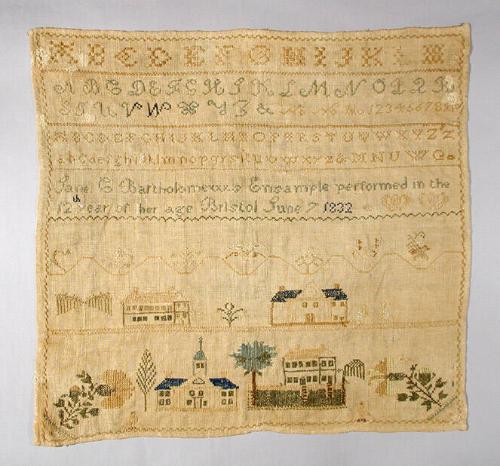 A B C D E F G H I J K L M
A B C D E F G H I K L M N O P Q R
S T U V W X Y Z & 1 2 3 4 5 6 7 8 9
A B C D E F G H I K L M N O P Q R S T U V W X Y Z
a b c d e f g h i k l m n o p q r s t u v w x y z & M N U W
Jane E Bartholomew,s Ensample performed in the
12th year of her age Bristol June 7 1832